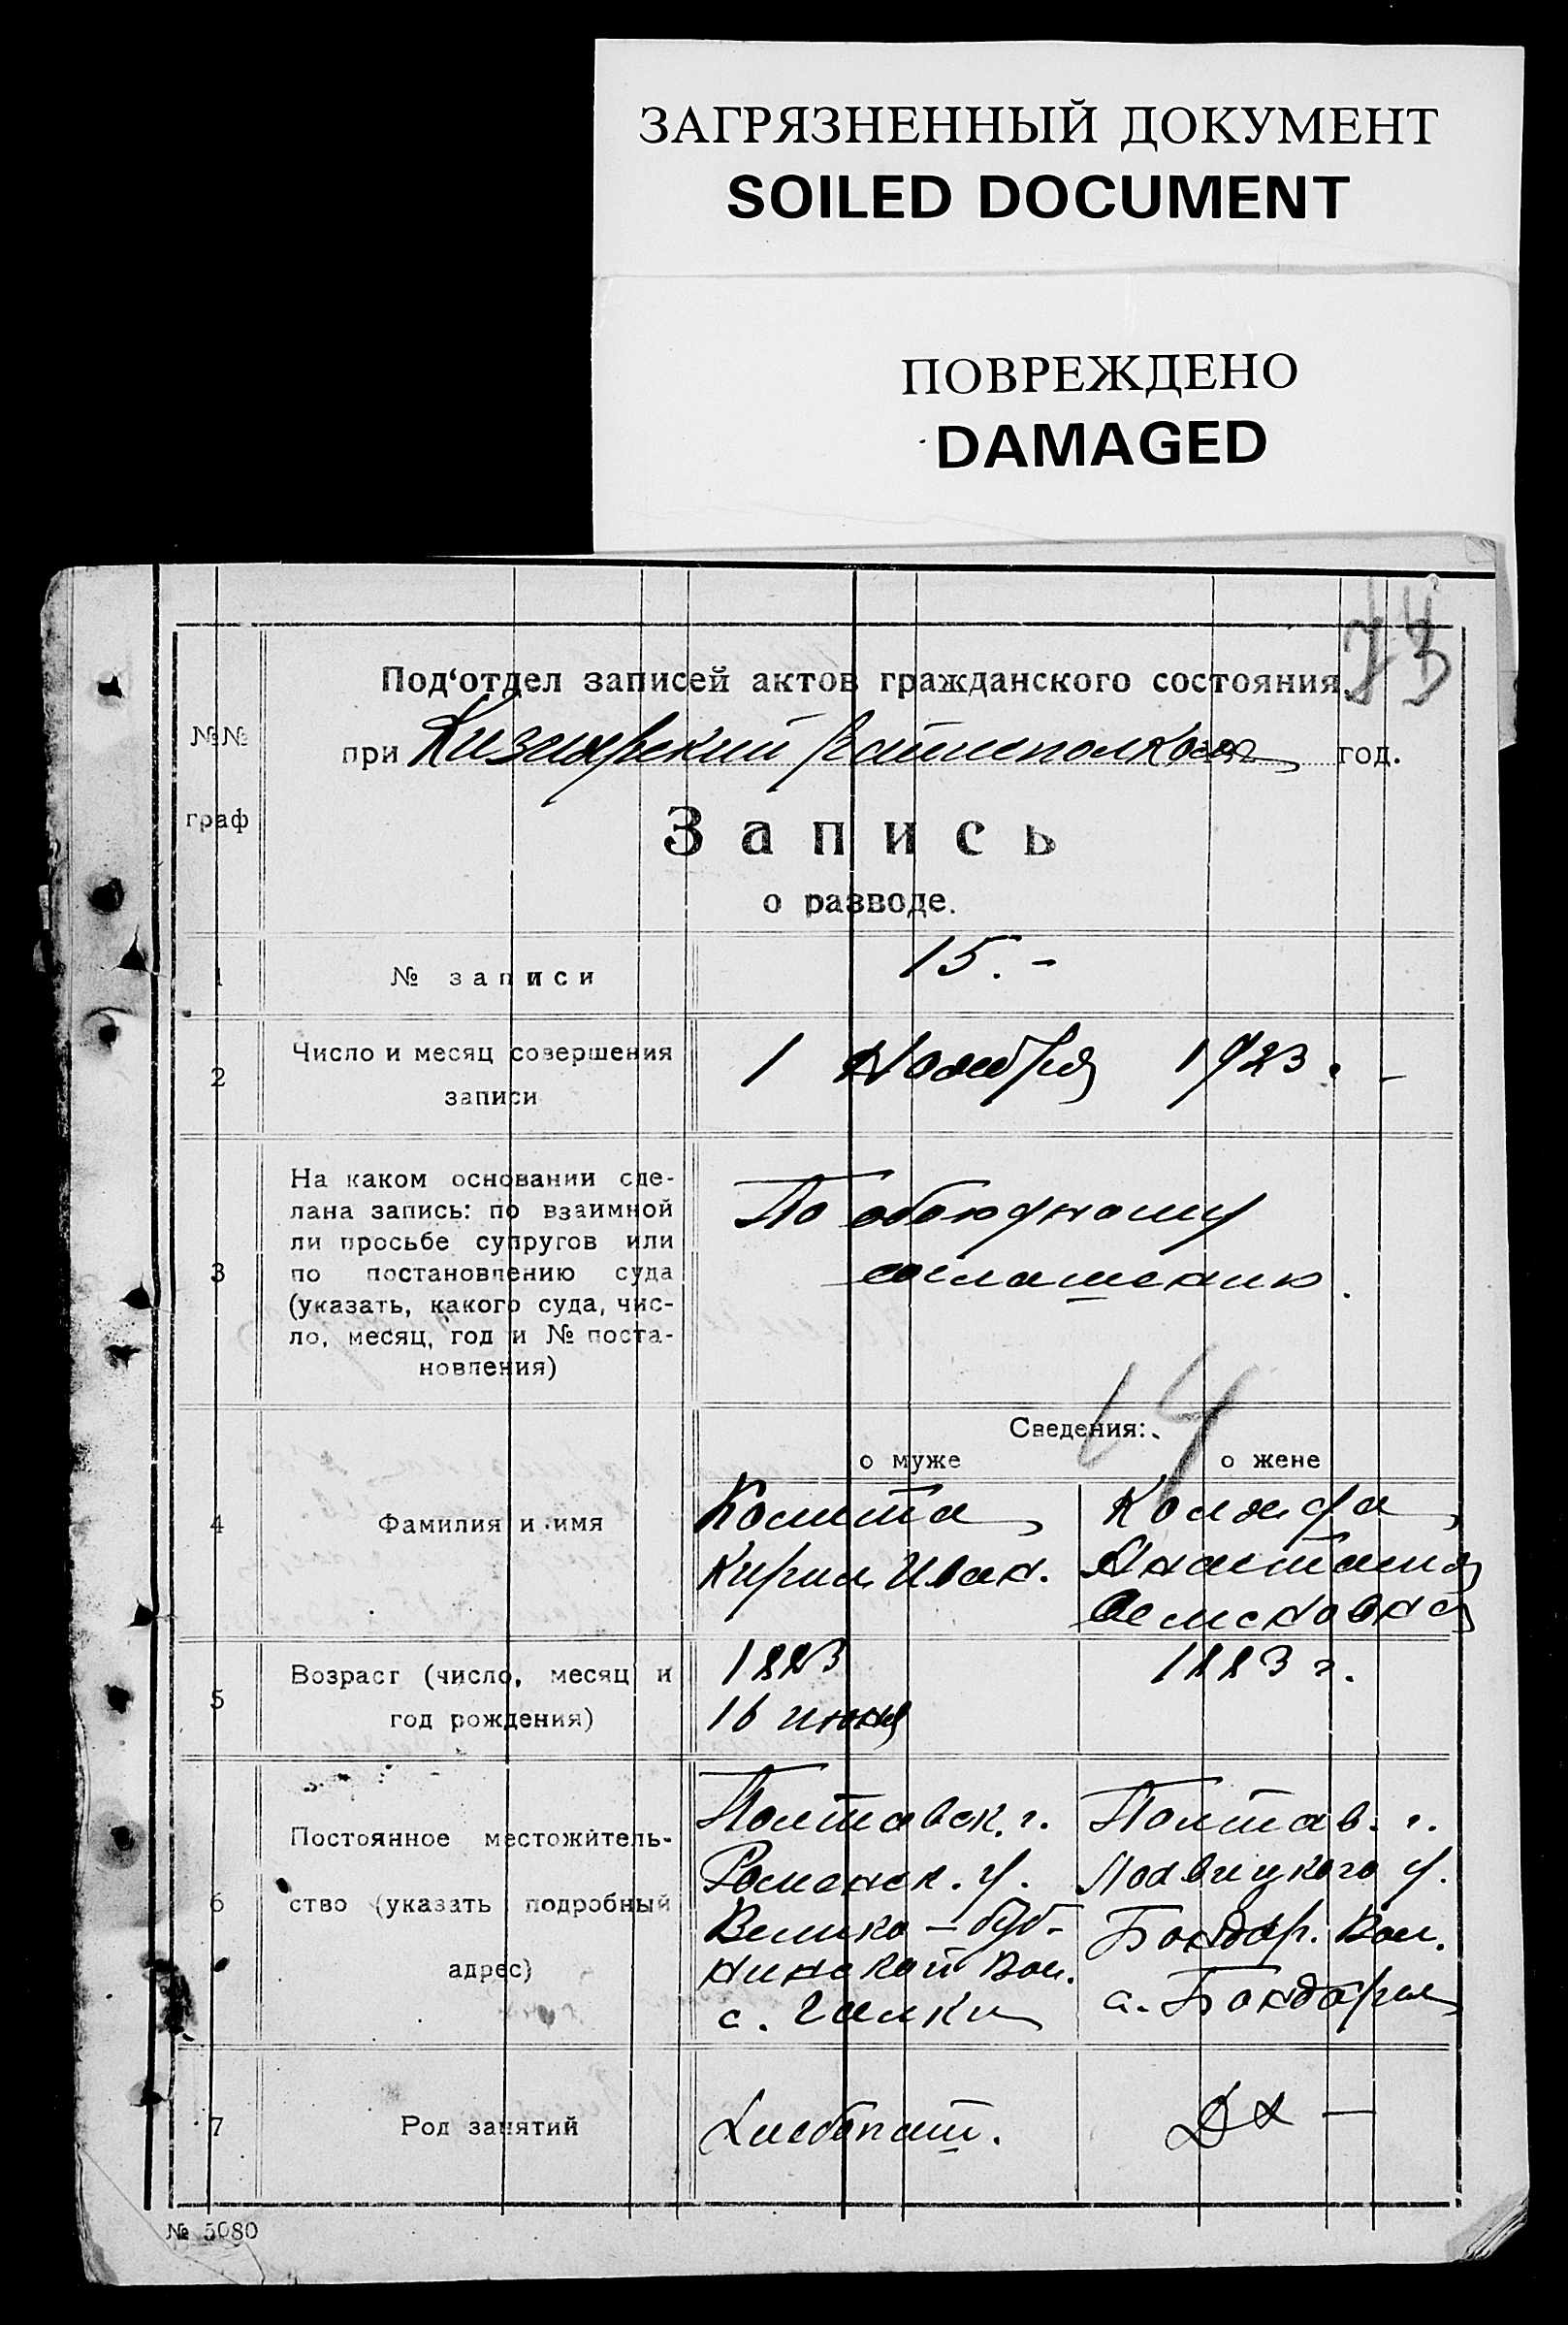 ЗАГРЯЗНЕННЫЙ ДОКУМЕНТ
SOILED DOCUMENT
ПОВРЕЖДЕНО
DAMAGED
Под‘отдел записей актов гражданского состояния
№№
при райисполкома год.
граф
Запись
о разводе.
1 № записи 15. -
2 Число и месяц совершения
записи
1 Ноября 1923. -
3 На каком основании сде-
лана запись: по взаимной
ли просьбе супругов или
по постановлению суда
(указать, какого суда, чис-
ло, месяц, год и № поста-
новления)
По обоюдному
соглашению.
14
Сведения:
о муже о жене
4 Фамилия и имя
Комита
Кирил Иван.
Анастасия
Семеновна
5 Возраст (число, месяц и
год рождения)
1883
16 июня
1883 г.
6 Постоянное местожитель-
ство (указать подробный
адрес)
Полтавск. г.
Роменск. у.
Велико-буб-
нинской Вол.
с. Галки
Полтав. г.
у.
Бондар. Вол.
с. Бондари
7 Род занятий
Хлебопаш.
Дх —
№ 5080